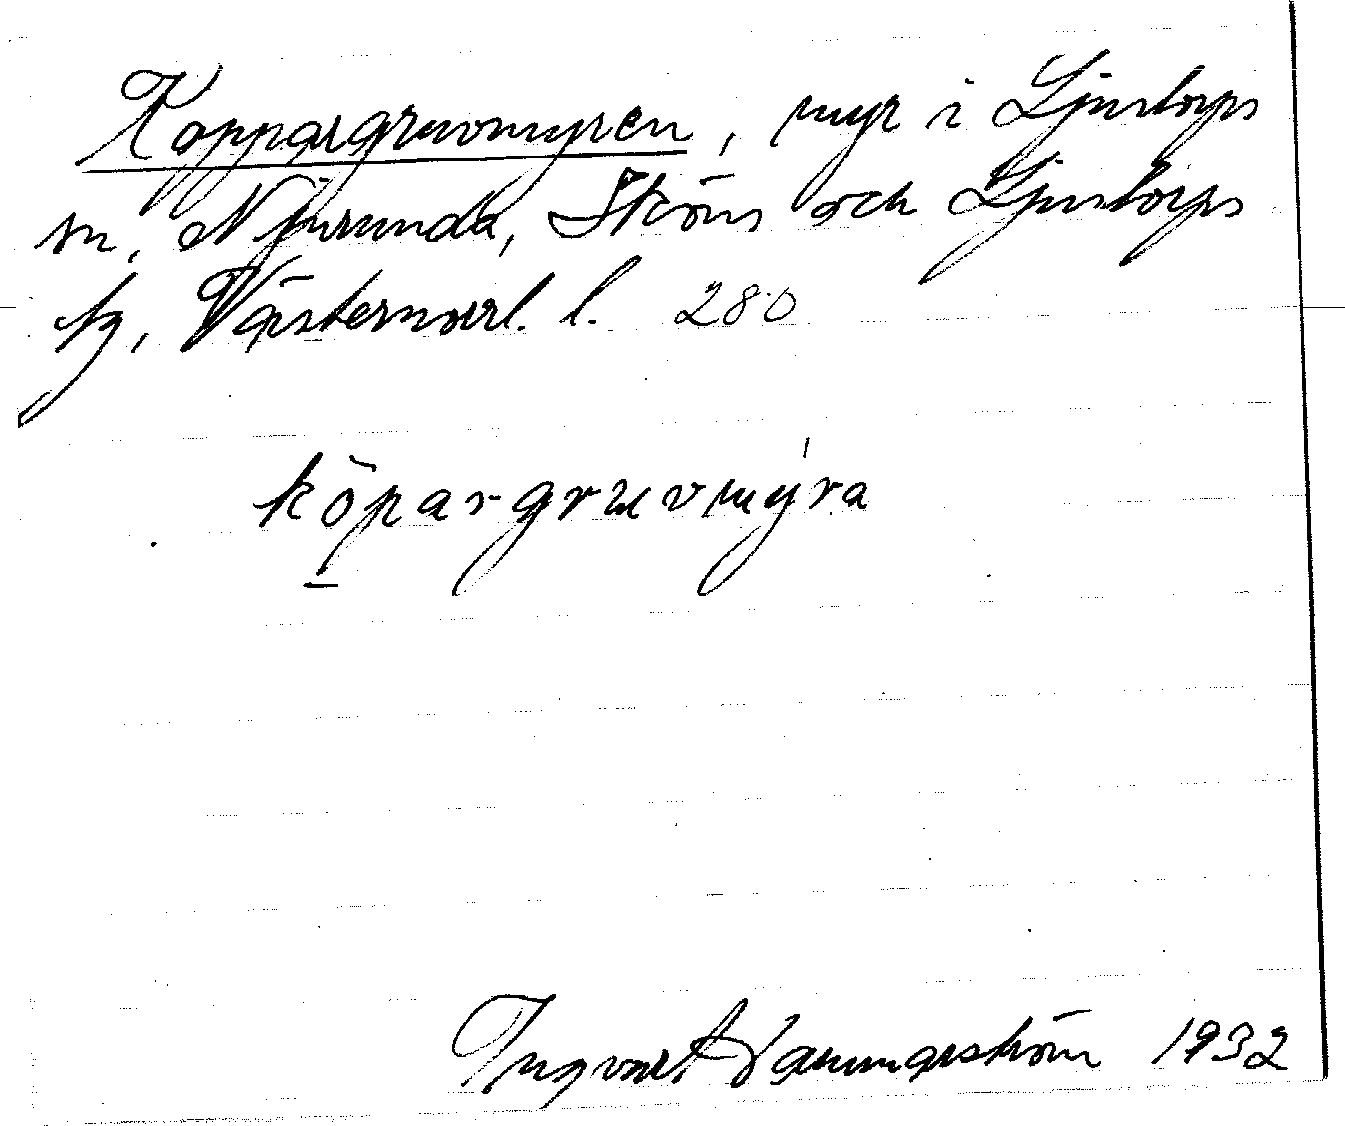 Koppargruvomyren, myr i Ljustorps
sn, Njurunda, Sköns och Ljustorps
tg, Västernorrl. l. 280
köpargruvmýra
Ingvart Hammarström 1932